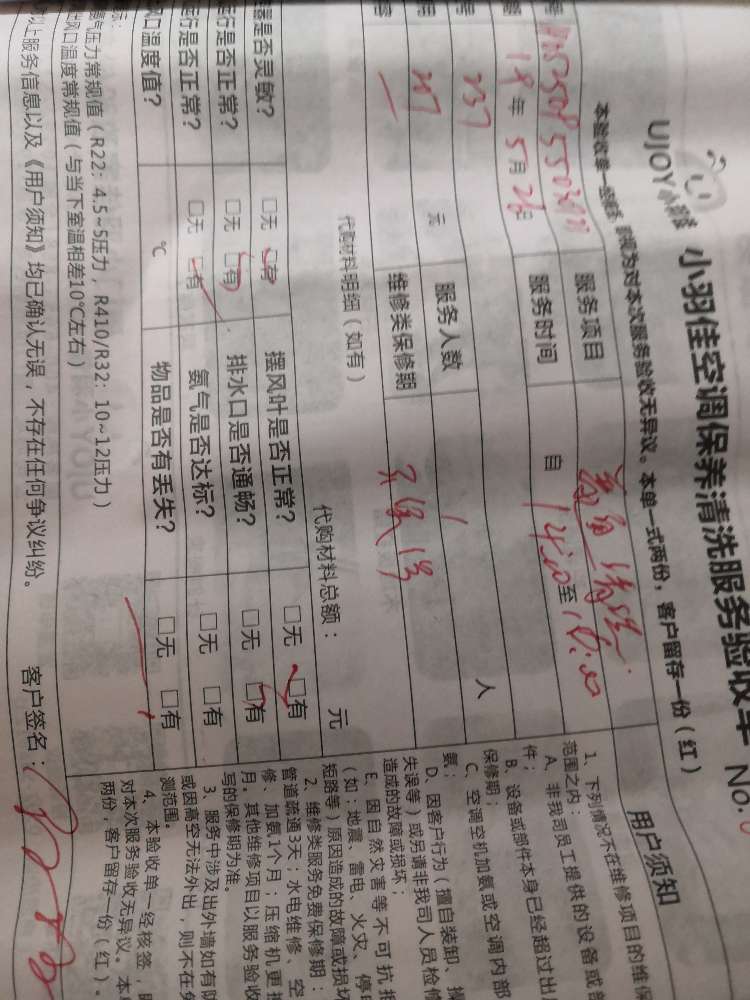 UJOY小羽佳 小羽佳空调保养清洗服务验收单 No.
本验收单一经核签，即视为对本次服务验收无异议。本单一式两份，客户留存一份（红）
服务项目
19年5月26日 服务时间 自14:00至
237
207 元 服务人数 1 人
维修类保修期
代购材料明细（如有） 代购材料总额： 元
是否灵敏？ □无 □有 摆风叶是否正常？ □无 □有
行是否正常？ □无 □有 排水口是否通畅？ □无 □有
运行是否正常？ □无 □有 氨气是否达标？ □无 □有
风口温度值？ ℃ 物品是否有丢失？ □无 □有
氨气压力常规值（R22：4.5~5压力，R410/R32：10~12压力）
出风口温度常规值（与当下室温相差10℃左右）
以上服务信息以及《用户须知》均已确认无误，不存在任何争议纠纷。 客户签名：
用户须知
1、下列情况不在维修项目的维保
范围之内：
A、非我司员工提供的设备或部
件；
B、设备或部件本身已经超过出
保修期；
C、空调空机加氨或空调内部
氨；
D、因客户行为（擅自装卸、操
失误等）或另请非我司人员检修
造成的故障或损坏；
E、因自然灾害等不可抗拒
（如：地震、雷电、火灾、停电
短路等）原因造成的故障或损坏
2、维修类服务免费保修期：
管道疏通3天；水电维修、空
修、加氨1个月；压缩机更换
月。其他维修项目以服务验收
写的保修期为准。
3、服务中涉及出外墙如有防
或因悬空无法外出，则不在免
测范围。
4、本验收单一经核签，即
对本次服务验收无异议。本单
两份，客户留存一份（红）。